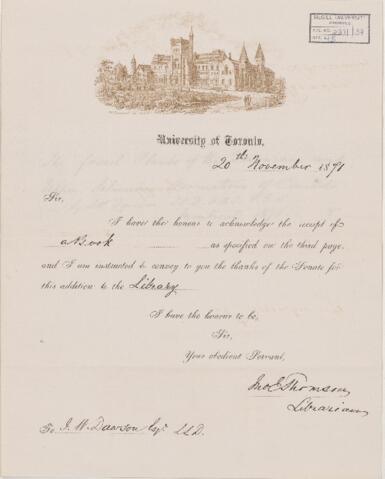 McGILL UNIVERSITY
ARCHIVES
ACC. NO.
REF.
University of Toronto.
20th November 1871
Sir,
I have the honour to acknowledge the receipt of
a Book as specified on the third page,
and I am instructed to convey to you the thanks of the Senate for
this addition to the Library
I have the honour to be,
Sir,
Your obedient Servant,
Jno E Thomson
Librarian
To J. W. Dawson Esqr. LL.D.